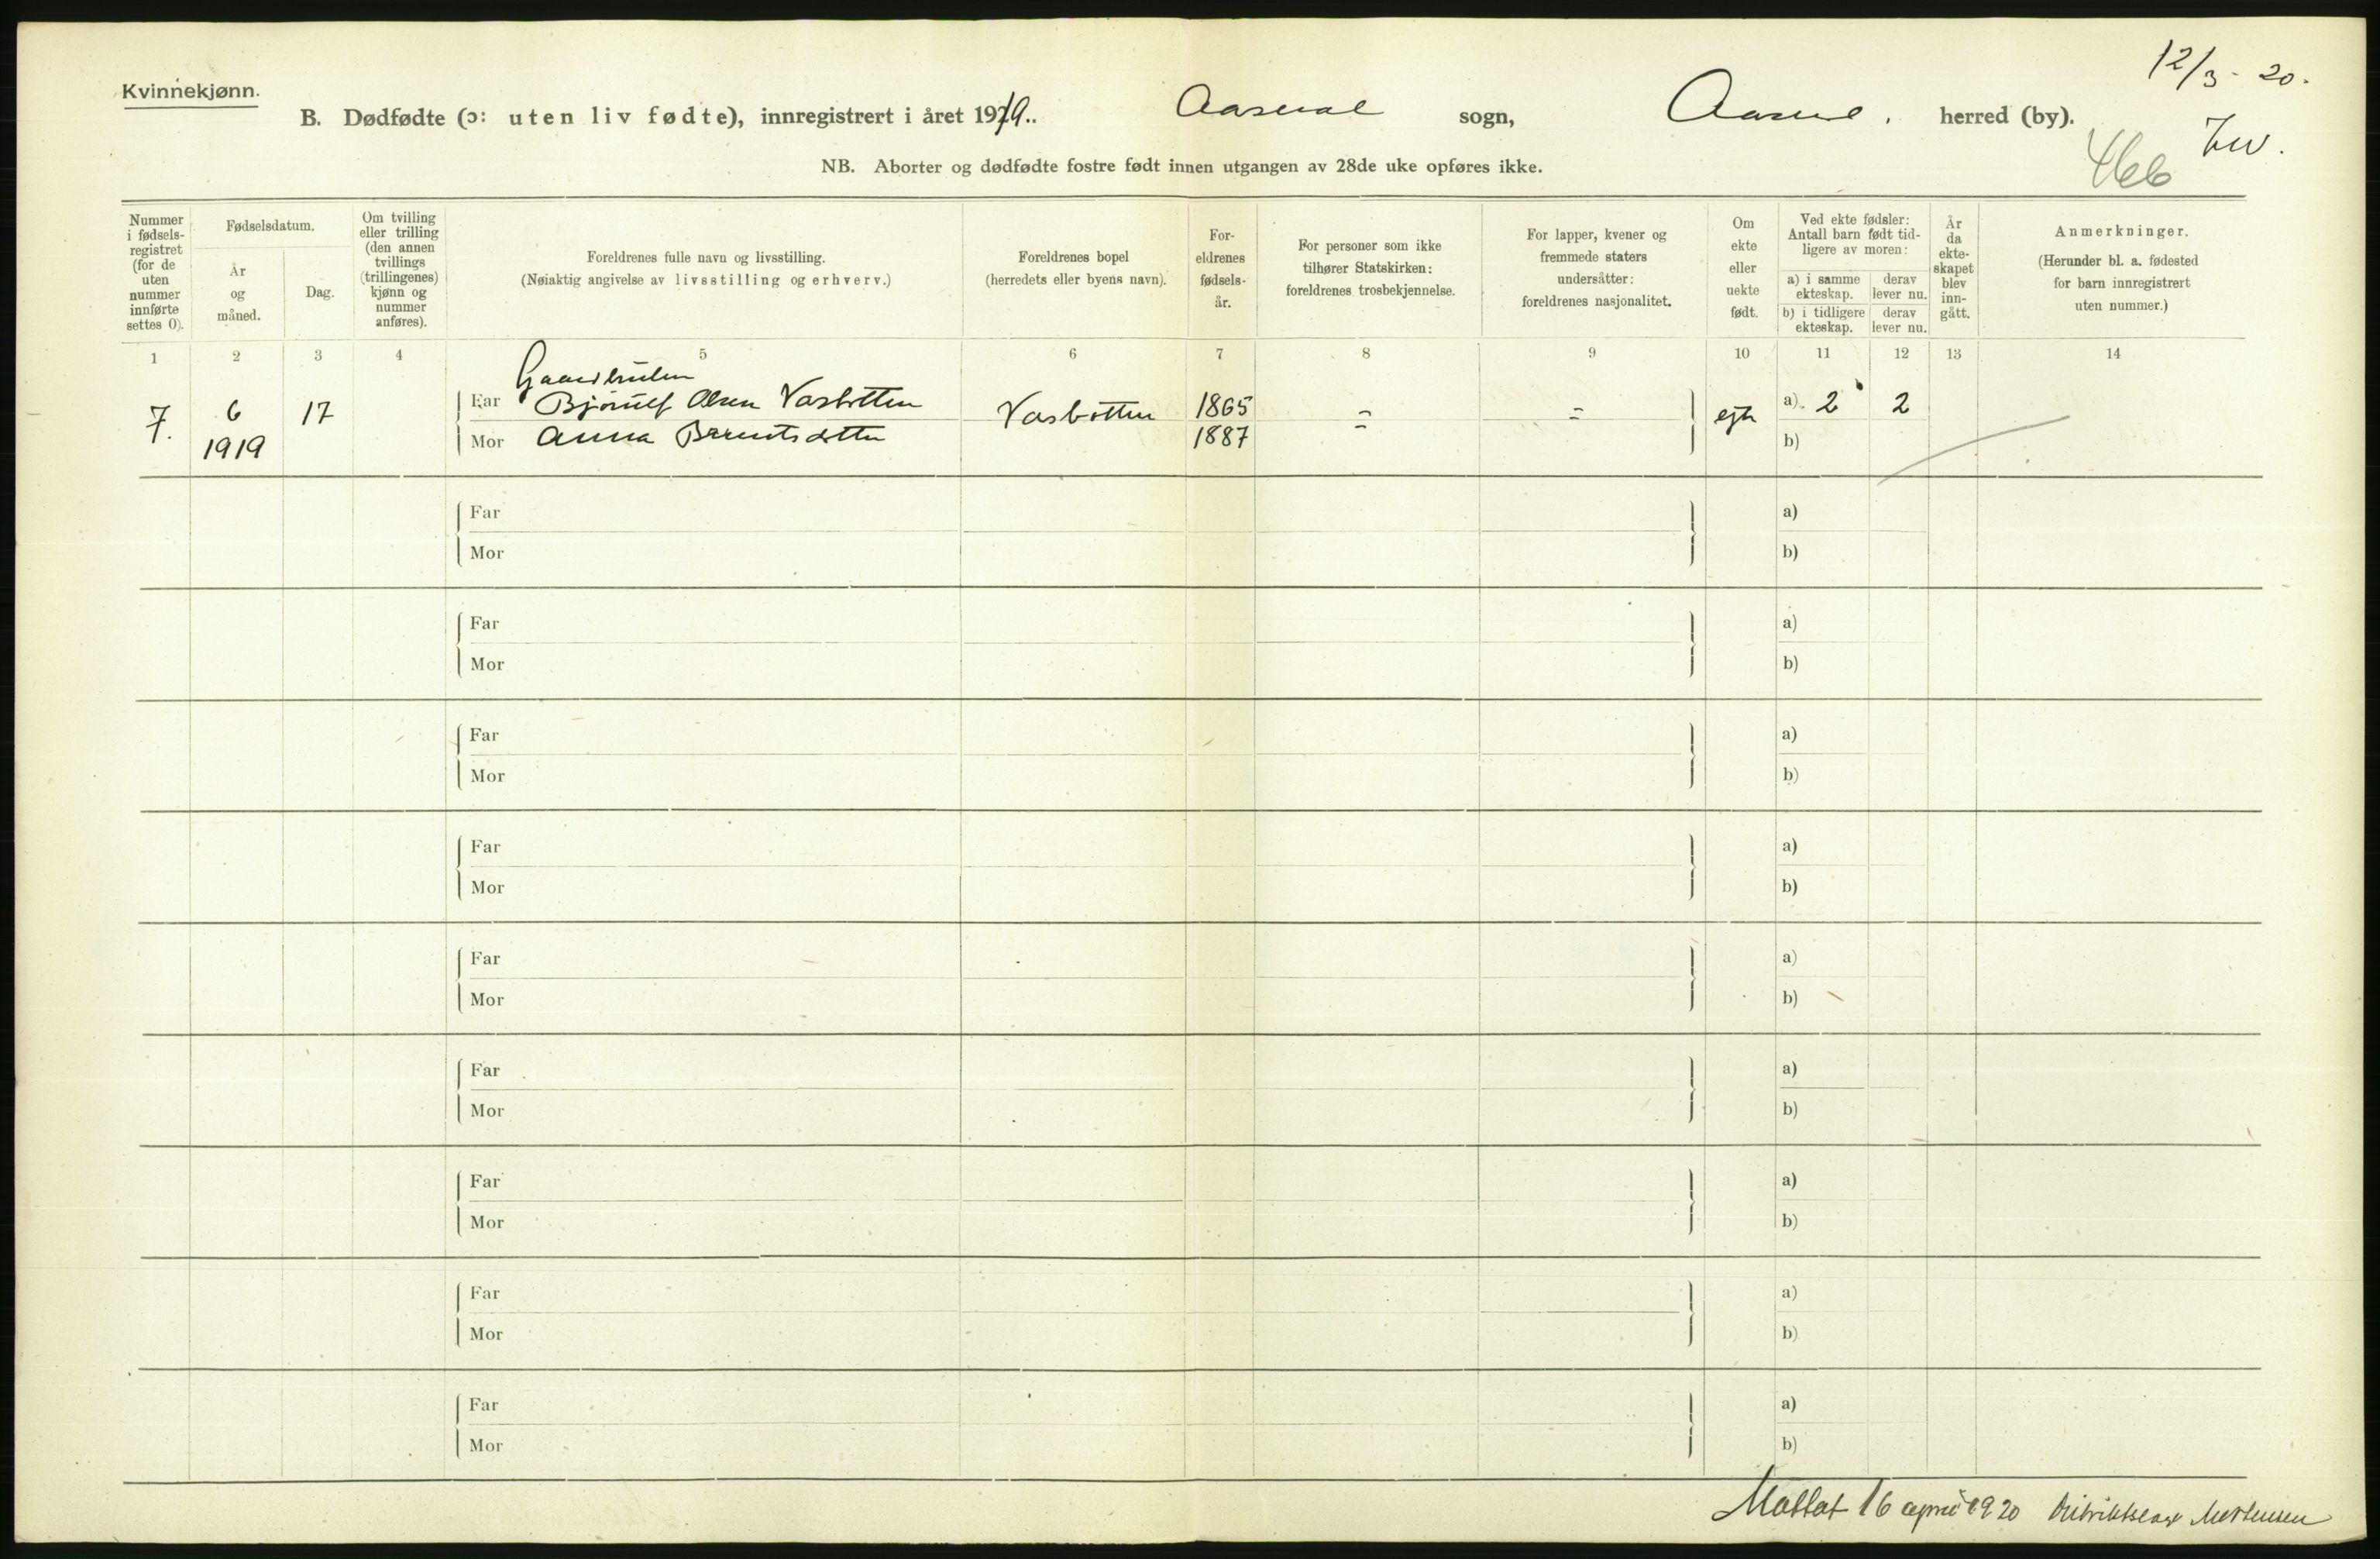 12/3 - 20.
Kvinnekjønn.
B. Dødfødte (ɔ: uten liv fødte), innregistrert i året 1919.. Aaseral sogn, Aaseral. herred (by).
466
NB. Aborter og dødfødte fostre født innen utgangen av 28de uke opføres ikke.
Nummer
i fødsels-
registret
(for de
uten
nummer
innførte
settes 0).
Fødselsdatum.
År
og
måned.
Dag.
Om tvilling
eller trilling
(den annen
tvillings
(trillingenes)
kjønn og
nummer
anføres).
Foreldrenes fulle navn og livsstilling.
(Nøiaktig angivelse av livsstilling og erhverv.)
Foreldrenes bopel
(herredets eller byens navn).
For-
eldrenes
fødsels-
år.
For personer som ikke
tilhører Statskirken:
foreldrenes trosbekjennelse.
For lapper, kvener og
fremmede staters
undersåtter:
foreldrenes nasjonalitet.
Om
ekte
eller
uekte
født.
Ved ekte fødsler:
Antall barn født tid-
ligere av moren:
a) i samme
ekteskap.
derav
lever nu.
b) i tidligere
ekteskap.
derav
lever nu.
År
da
ekte-
skapet
blev
inn-
gått.
Anmerkninger.
(Herunder bl. a. fødested
for barn innregistrert
uten nummer.)
1 2 3 4 5 6 7 8 9 10 11 12 13 14
Gaardbruker
7. 6 17 Far Bjørnulf Olsen Vasbotten Vasbotten 1865 = = egte a). 2 2
1919 Mor Anna Berentsdotter 1887 b)
Far a)
Mor b)
Far a)
Mor b)
Far a)
Mor b)
Far a)
Mor b)
Far a)
Mor b)
Far a)
Mor b)
Far a)
Mor b)
Far a)
Mor b)
Far a)
Mor b)
Mottat 16 april 1920 Distriktslæge Mortensen